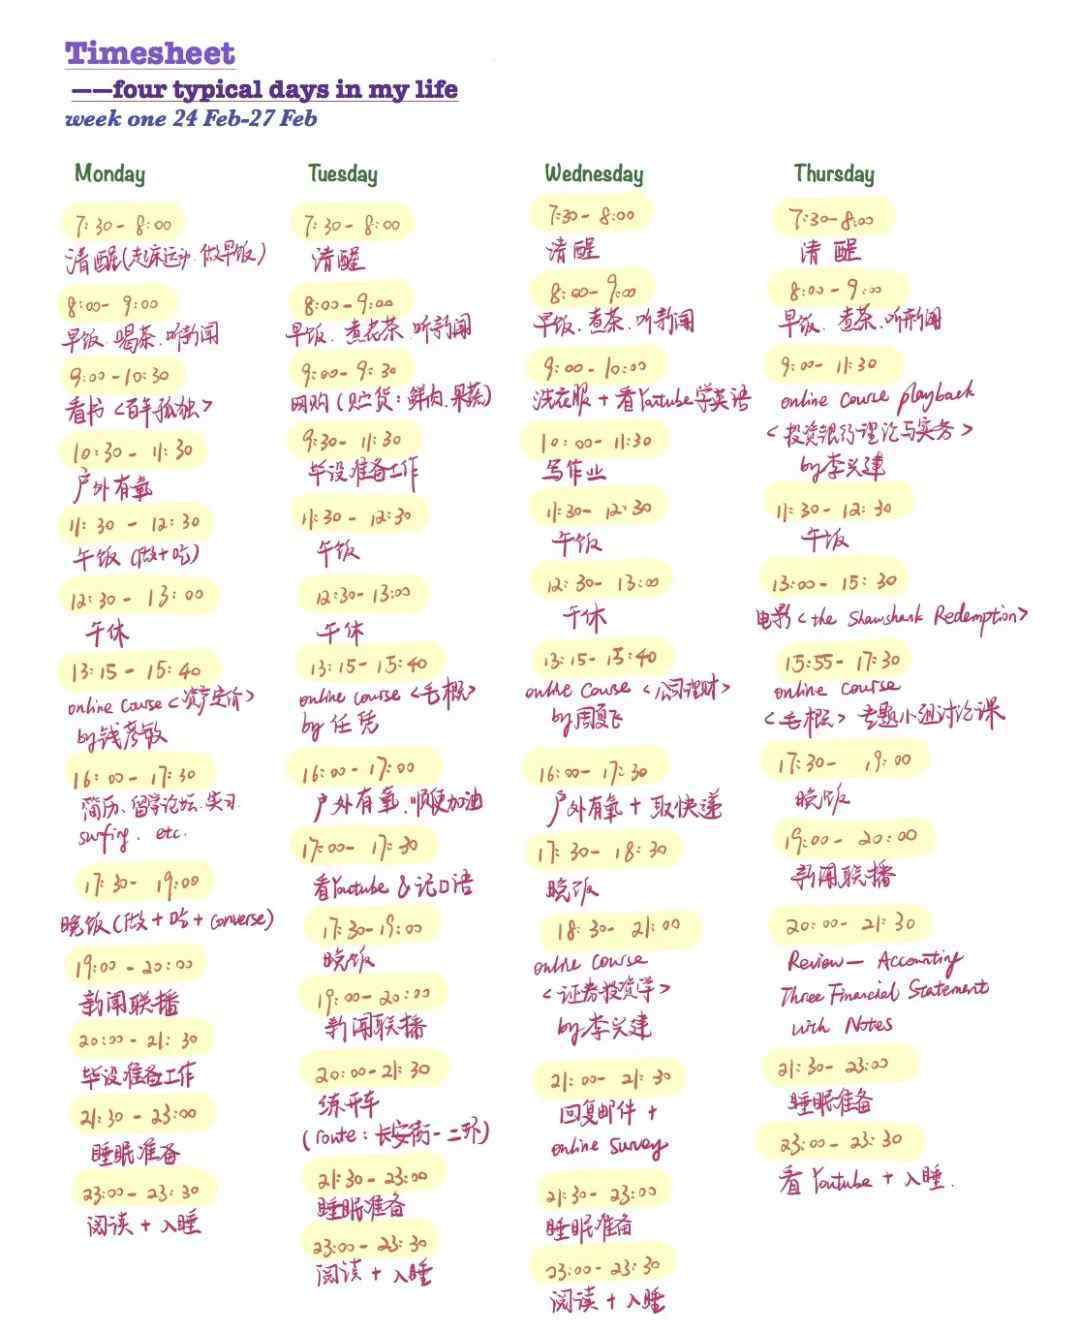 Timesheet
——four typical days in my life
week one 24 Feb-27 Feb
Monday
7:30 - 8:00
清醒(起床运动 做早饭)
8:00 - 9:00
早饭、喝茶、听新闻
9:00 - 10:30
看书<百年孤独>
10:30 - 11:30
户外有氧
11:30 - 12:30
午饭 (做+吃)
12:30 - 13:00
午休
13:15 - 15:40
online course <资产定价>
by 钱彦敏
16:00 - 17:30
简历、留学论坛、实习
surfing. etc.
17:30 - 19:00
晚饭 (做+吃+converse)
19:00 - 20:00
新闻联播
20:00 - 21:30
毕设准备工作
21:30 - 23:00
睡眠准备
23:00 - 23:30
阅读 + 入睡
Tuesday
7:30 - 8:00
清醒
8:00 - 9:00
早饭、煮花茶、听新闻
9:00 - 9:30
网购 (贮货: 鲜肉.果蔬)
9:30 - 11:30
毕设准备工作
11:30 - 12:30
午饭
12:30 - 13:00
午休
13:15 - 15:40
online course <毛概>
by 任凭
16:00 - 17:00
户外有氧.顺便加油
17:00 - 17:30
看Youtube & 记口语
17:30 - 19:00
晚饭
19:00 - 20:00
新闻联播
20:00 - 21:30
练开车
(route: 长安街 - 二环)
21:30 - 23:00
睡眠准备
23:00 - 23:30
阅读 + 入睡
Wednesday
7:30 - 8:00
清醒
8:00 - 9:00
早饭、煮茶、听新闻
9:00 - 10:00
洗衣服 + 看Youtube学英语
10:00 - 11:30
写作业
11:30 - 12:30
午饭
12:30 - 13:00
午休
13:15 - 15:40
online course <公司理财>
by 周夏飞
16:00 - 17:30
户外有氧 + 取快递
17:30 - 18:30
晚饭
18:30 - 21:00
online course
<证券投资学>
by 李兴建
21:00 - 21:30
回复邮件 +
online survey
21:30 - 23:00
睡眠准备
23:00 - 23:30
阅读 + 入睡
Thursday
7:30 - 8:00
清醒
8:00 - 9:00
早饭、煮茶、听新闻
9:00 - 11:30
online course playback
<投资银行理论与实务>
by 李兴建
11:30 - 12:30
午饭
13:00 - 15:30
电影 <the Shawshank Redemption>
15:55 - 17:30
online course
<毛概> 专题小组讨论课
17:30 - 19:00
晚饭
19:00 - 20:00
新闻联播
20:00 - 21:30
Review — Accounting
Three Financial Statement
with Notes
21:30 - 23:00
睡眠准备
23:00 - 23:30
看 Youtube + 入睡.